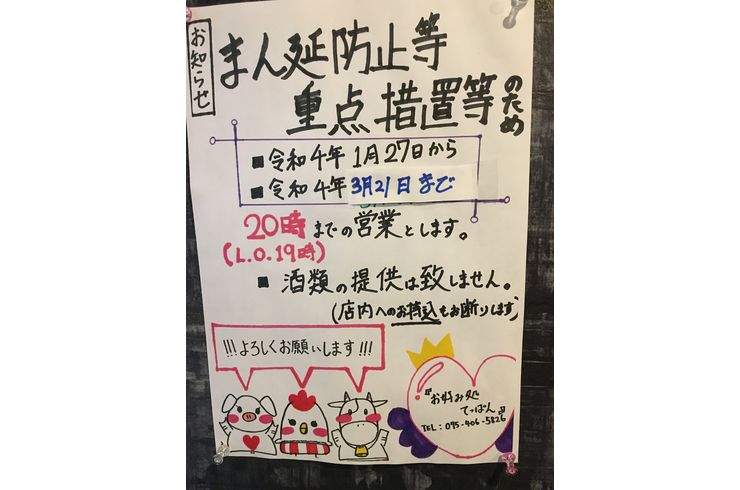 お知らせ
まん延防止等
重点措置等のため
■令和4年1月27日から
■令和4年3月21日まで
20時までの営業とします。
(L.O.19時)
■酒類の提供は致しません。
(店内へのお持込もお断りします)
!!!よろしくお願いします!!!
『お好み処
てっぱん』
TEL:095-406-5826